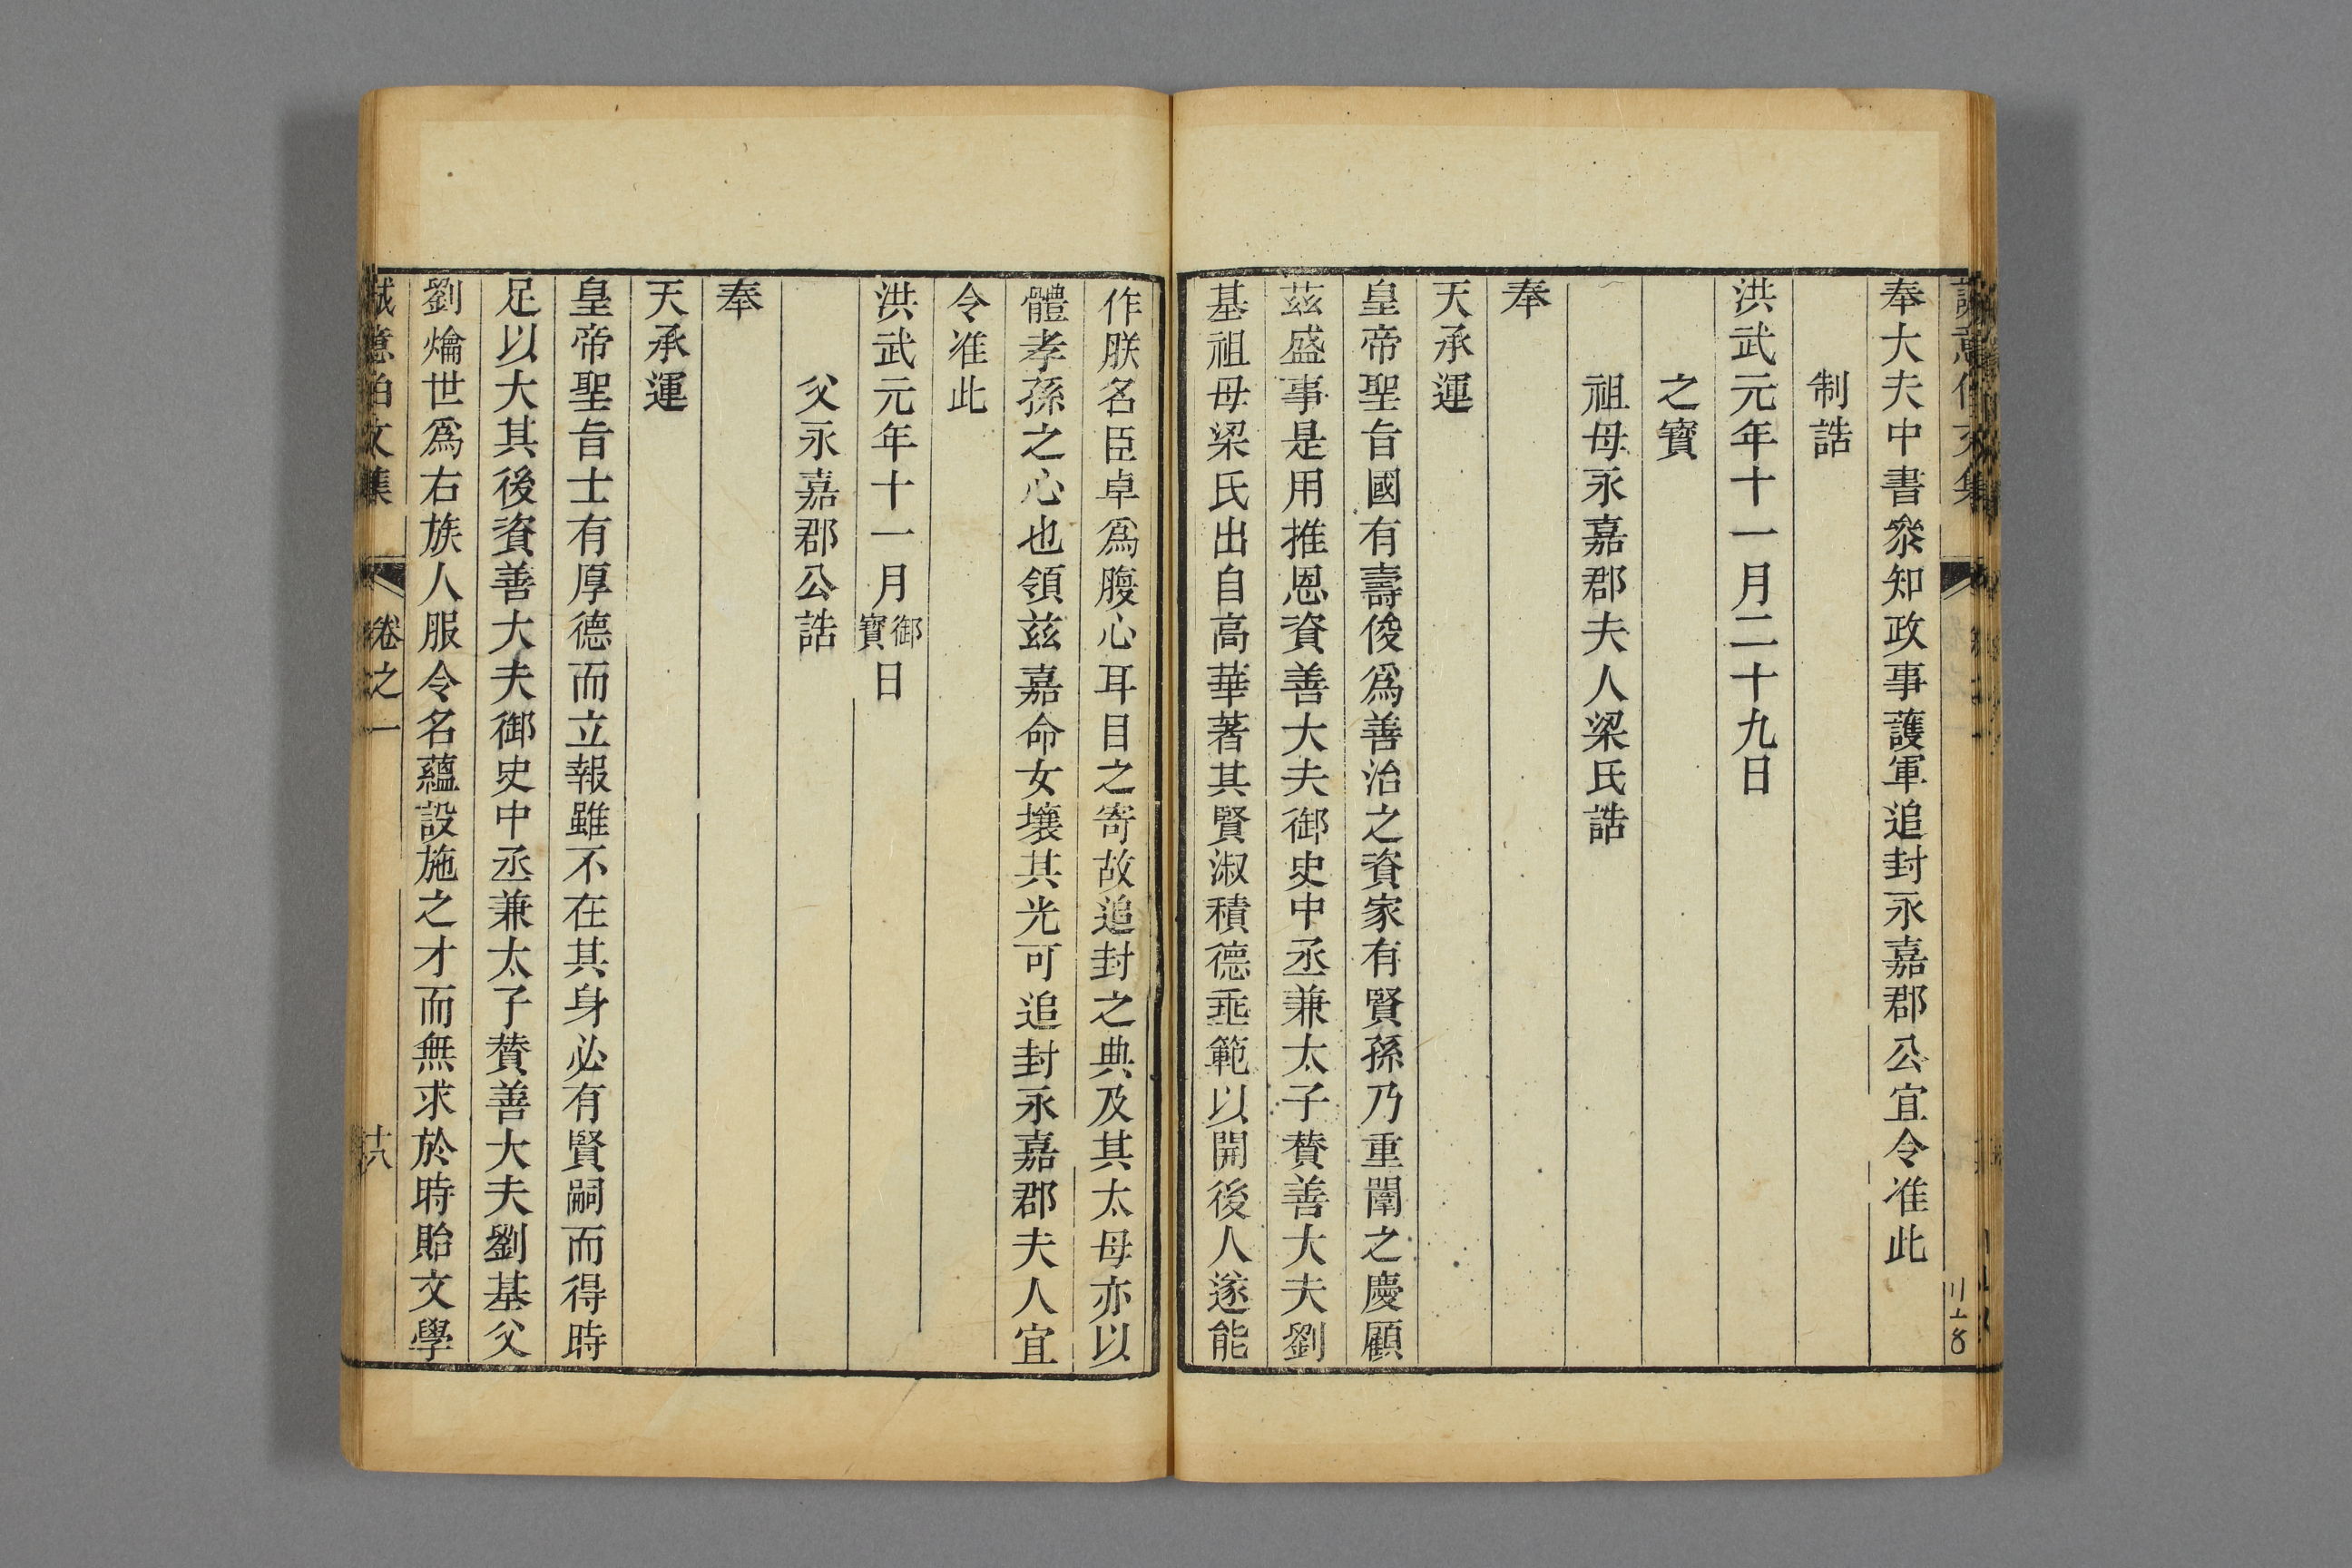 奉大夫中書叅知政事護軍追封永嘉郡公宜令准此
制誥
洪武元年十一月二十九日
之寳
祖母永嘉郡夫人梁氏誥
奉
天承運
皇帝聖旨國有壽俊爲善治之資家有賢孫乃重闈之慶顧
茲盛事是用推恩資善大夫御史中丞兼太子賛善大夫劉
基祖母梁氏出自高華著其賢淑積德垂範以開後人遂能
作朕名臣卓爲腹心耳目之寄故追封之典及其太母亦以
體孝孫之心也領茲嘉命女壤其光可追封永嘉郡夫人宜
令准此
洪武元年十一月御寳日
父永嘉郡公誥
奉
天承運
皇帝聖旨士有厚德而立報雖不在其身必有賢嗣而得時
足以大其後資善大夫御史中丞兼太子賛善大夫劉基父
劉爚世爲右族人服令名蘊設施之才而無求於時貽文學
誠意伯文集 卷之一 十八